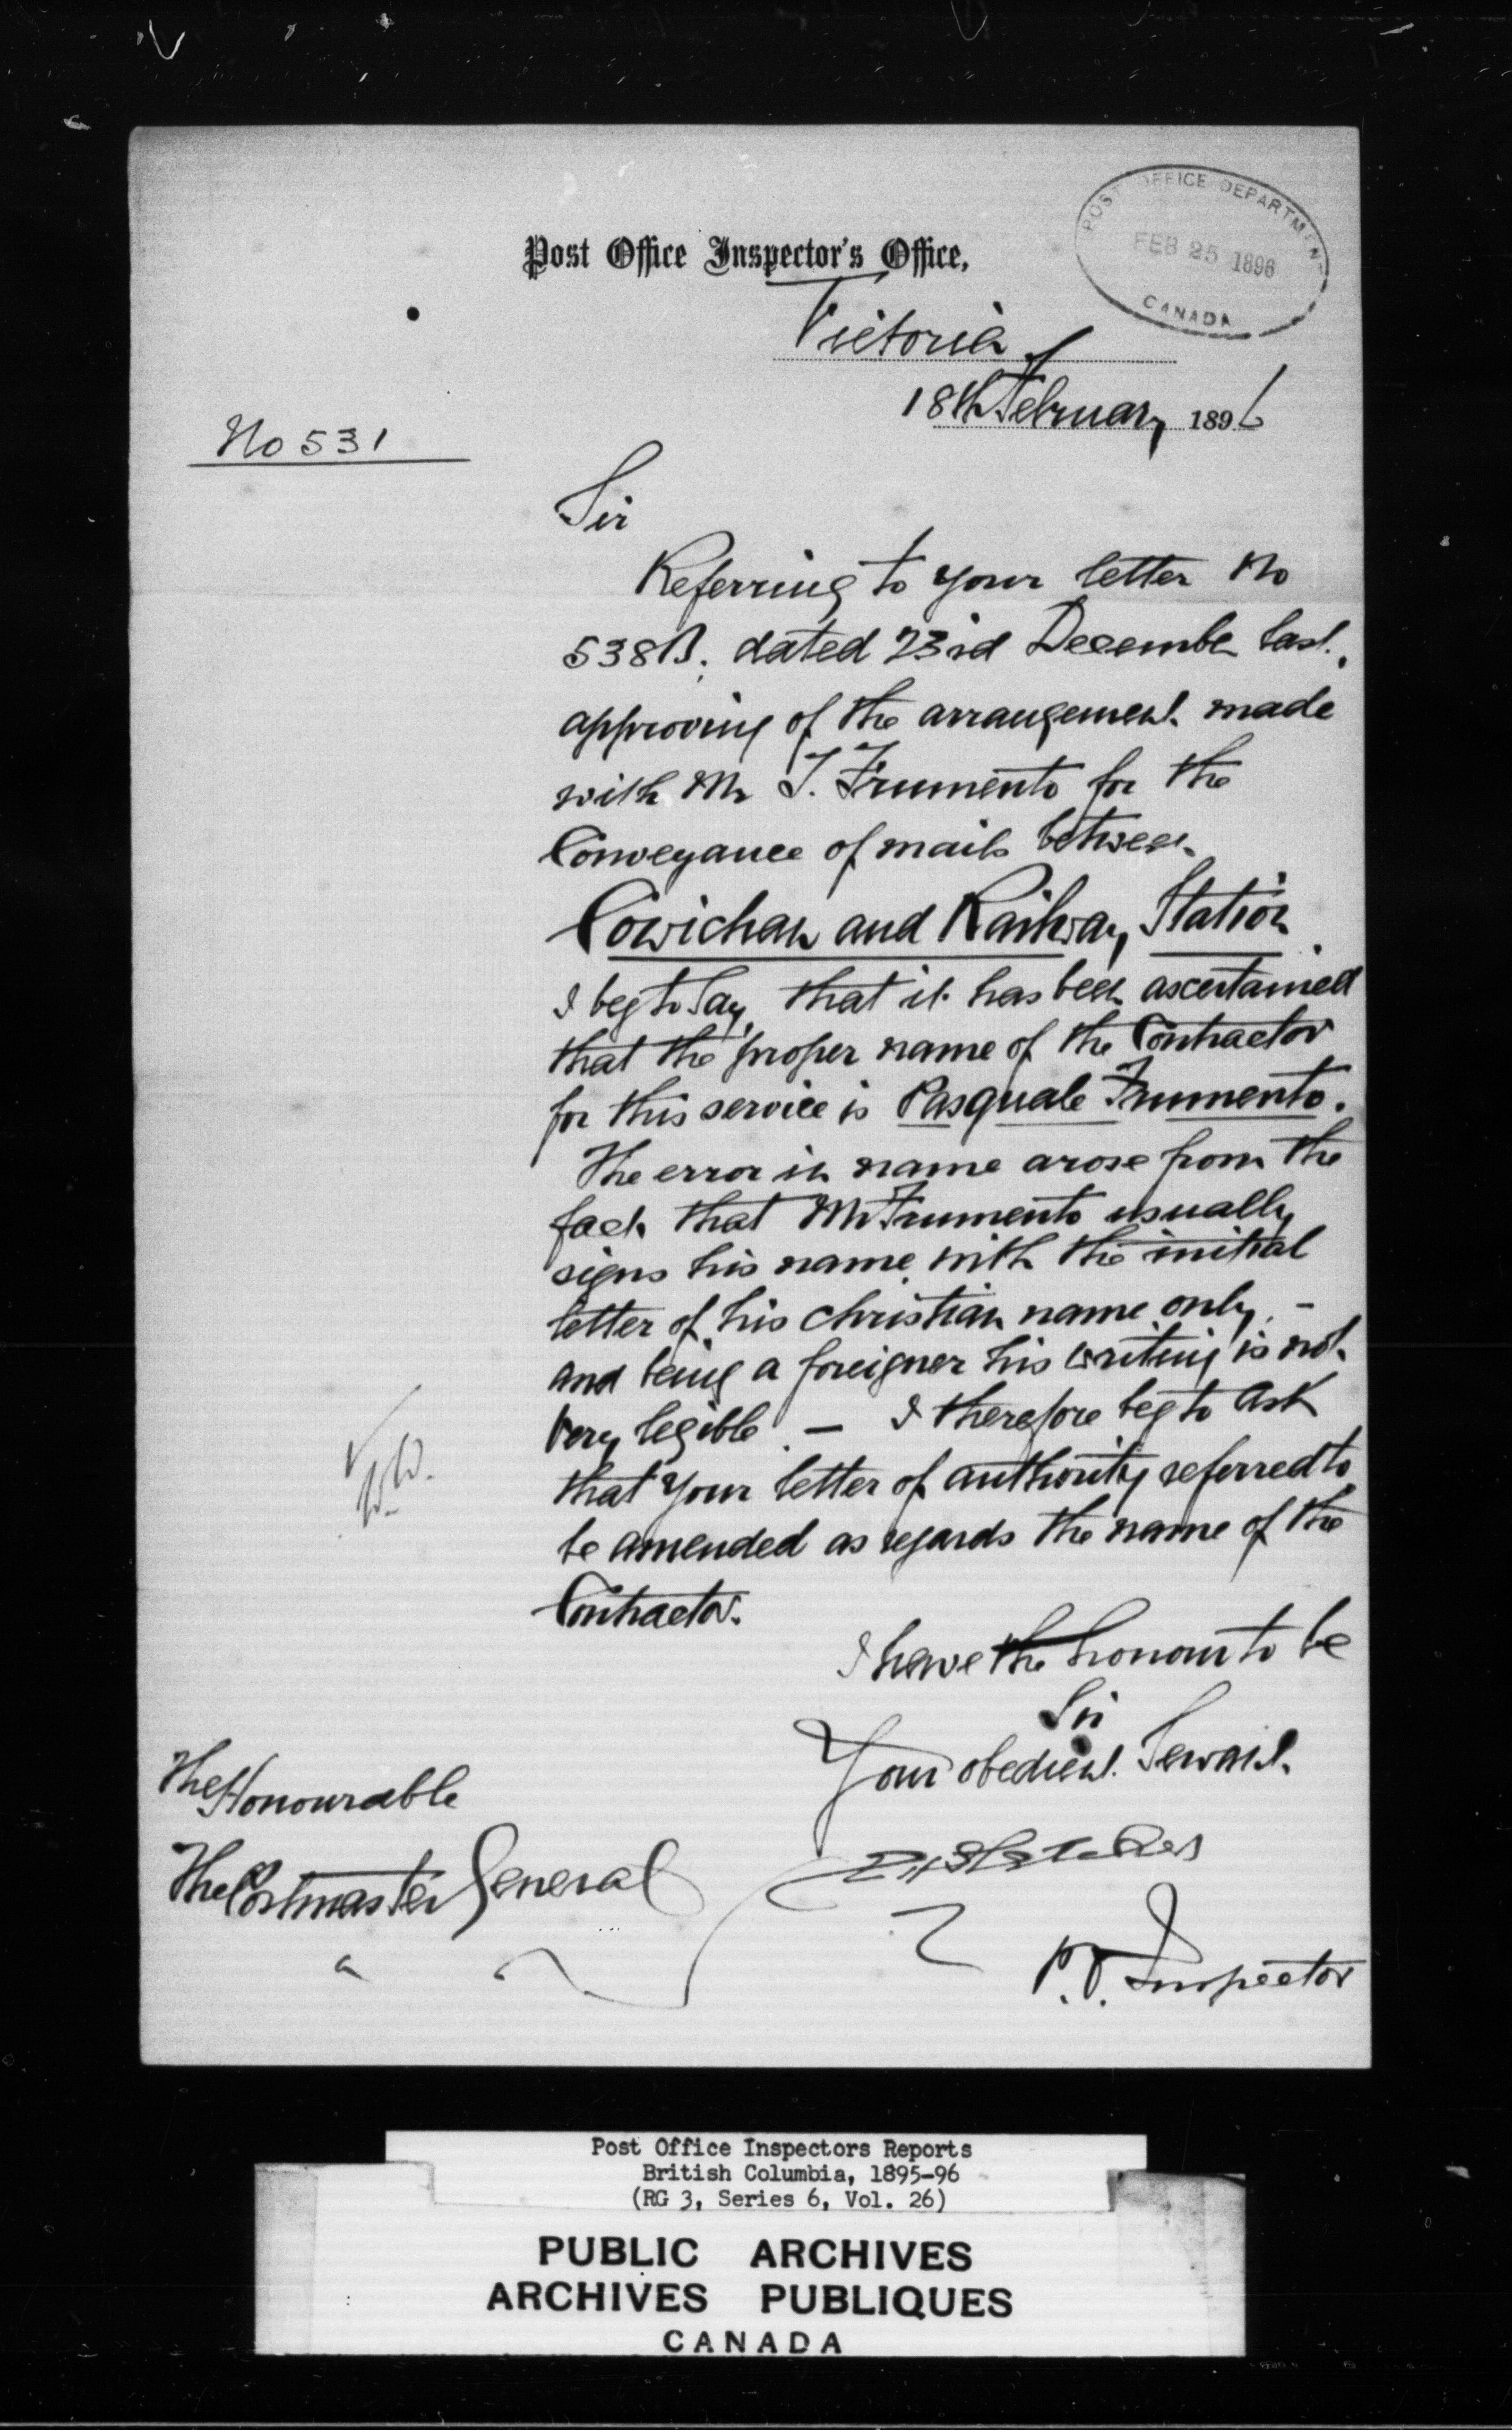 POST OFFICE DEPARTMENT
FEB 25 1896
CANADA
Post Office Inspector's Office,
Victoria
18th February 1896
No 531
Sir
Referring to your letter No
538B. dated 23rd December last,
approving of the arrangement made
with Mr T. Frumento for the
Conveyance of mails between
Cowichan and Railway Station
I beg to say, that it has been ascertained
that the proper name of the Contractor
for this service is Pasquale Frumento.
The error in name arose from the
fact that Mr Frumento usually
signs his name with the initial
letter of his christian name only, -
and being a foreigner his writing is not
very legible. - I therefore beg to ask
that your letter of authority referred to
be amended as regards the name of the
Contractor.
I have the honour to be
Sir
Your obedient Servant.
P.O. Inspector
The Honourable
The Postmaster General
Post Office Inspectors Reports
British Columbia, 1895-96
(RG 3, Series 6, Vol. 26)
PUBLIC ARCHIVES
ARCHIVES PUBLIQUES
CANADA